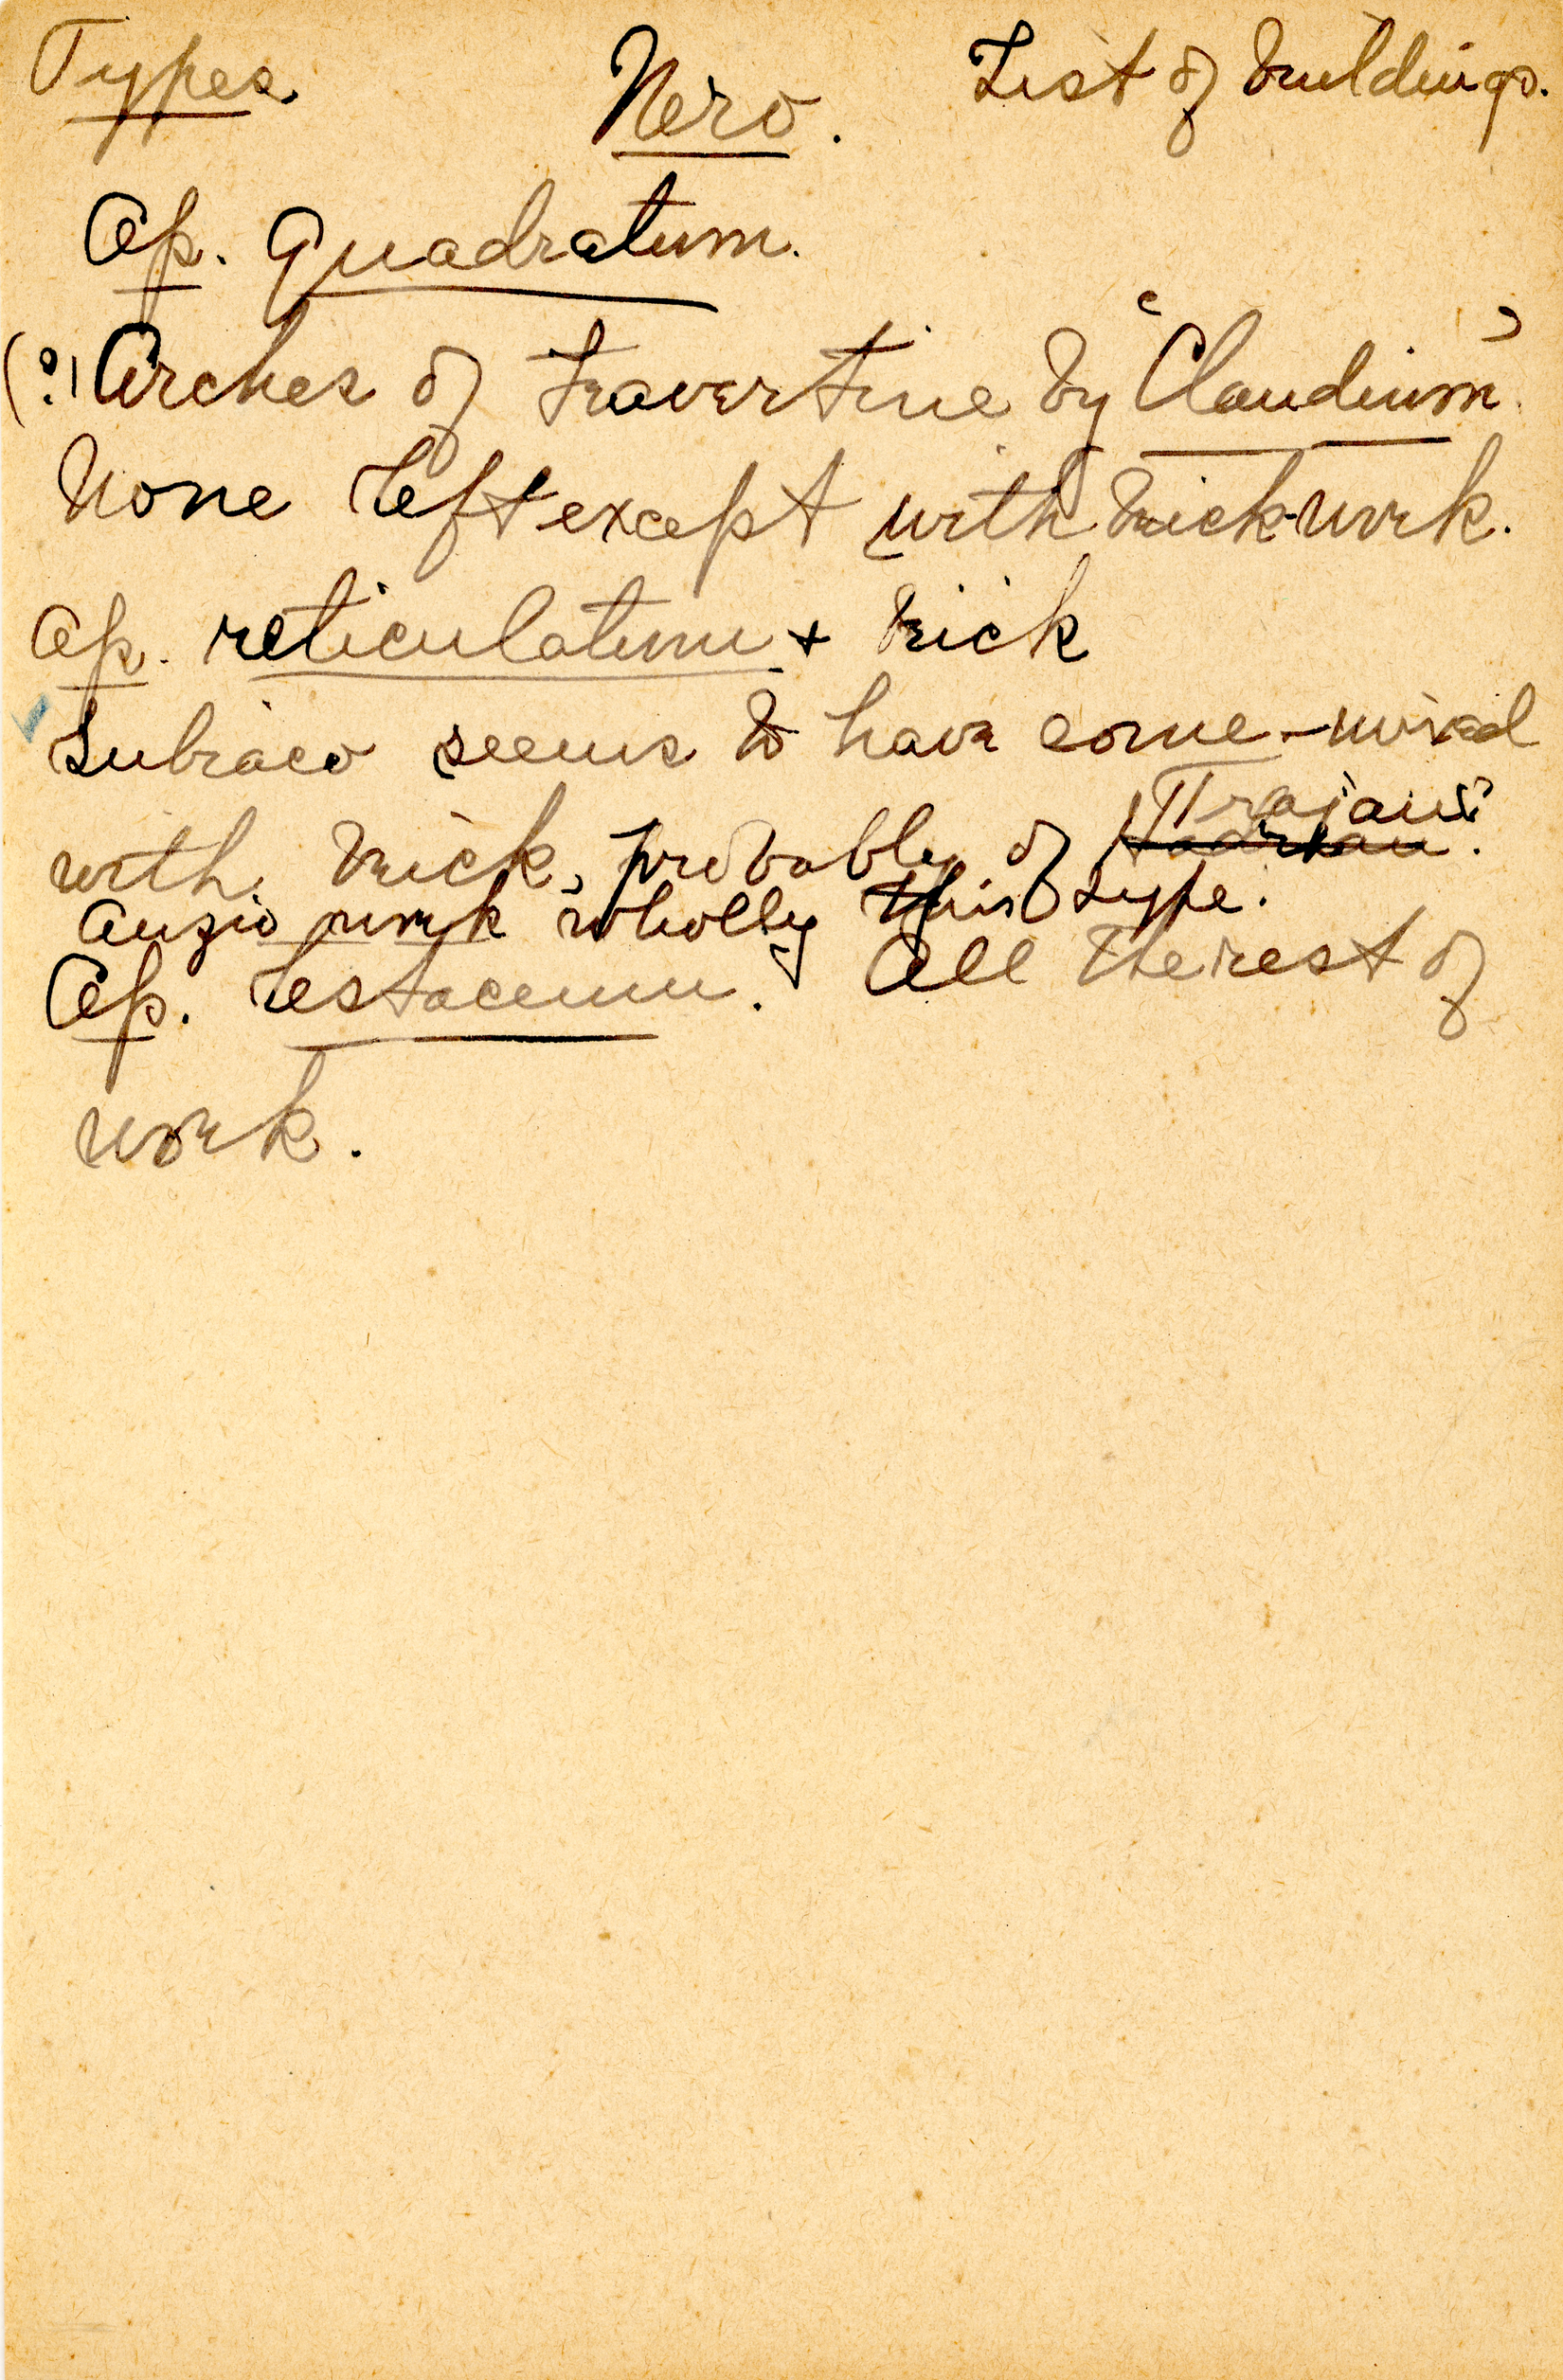 Types Nero. List of buildings.
Op. Quadratum.
(?) Arches of travertine by "Claudium"
None left except with brick-work.
Op. reticulatum + brick
Subiaco seems to have some - mixed
with brick, probably of Hadrian. Trajan's?
Anzio work wholly this type.
Op. testaceum. All the rest of
work.